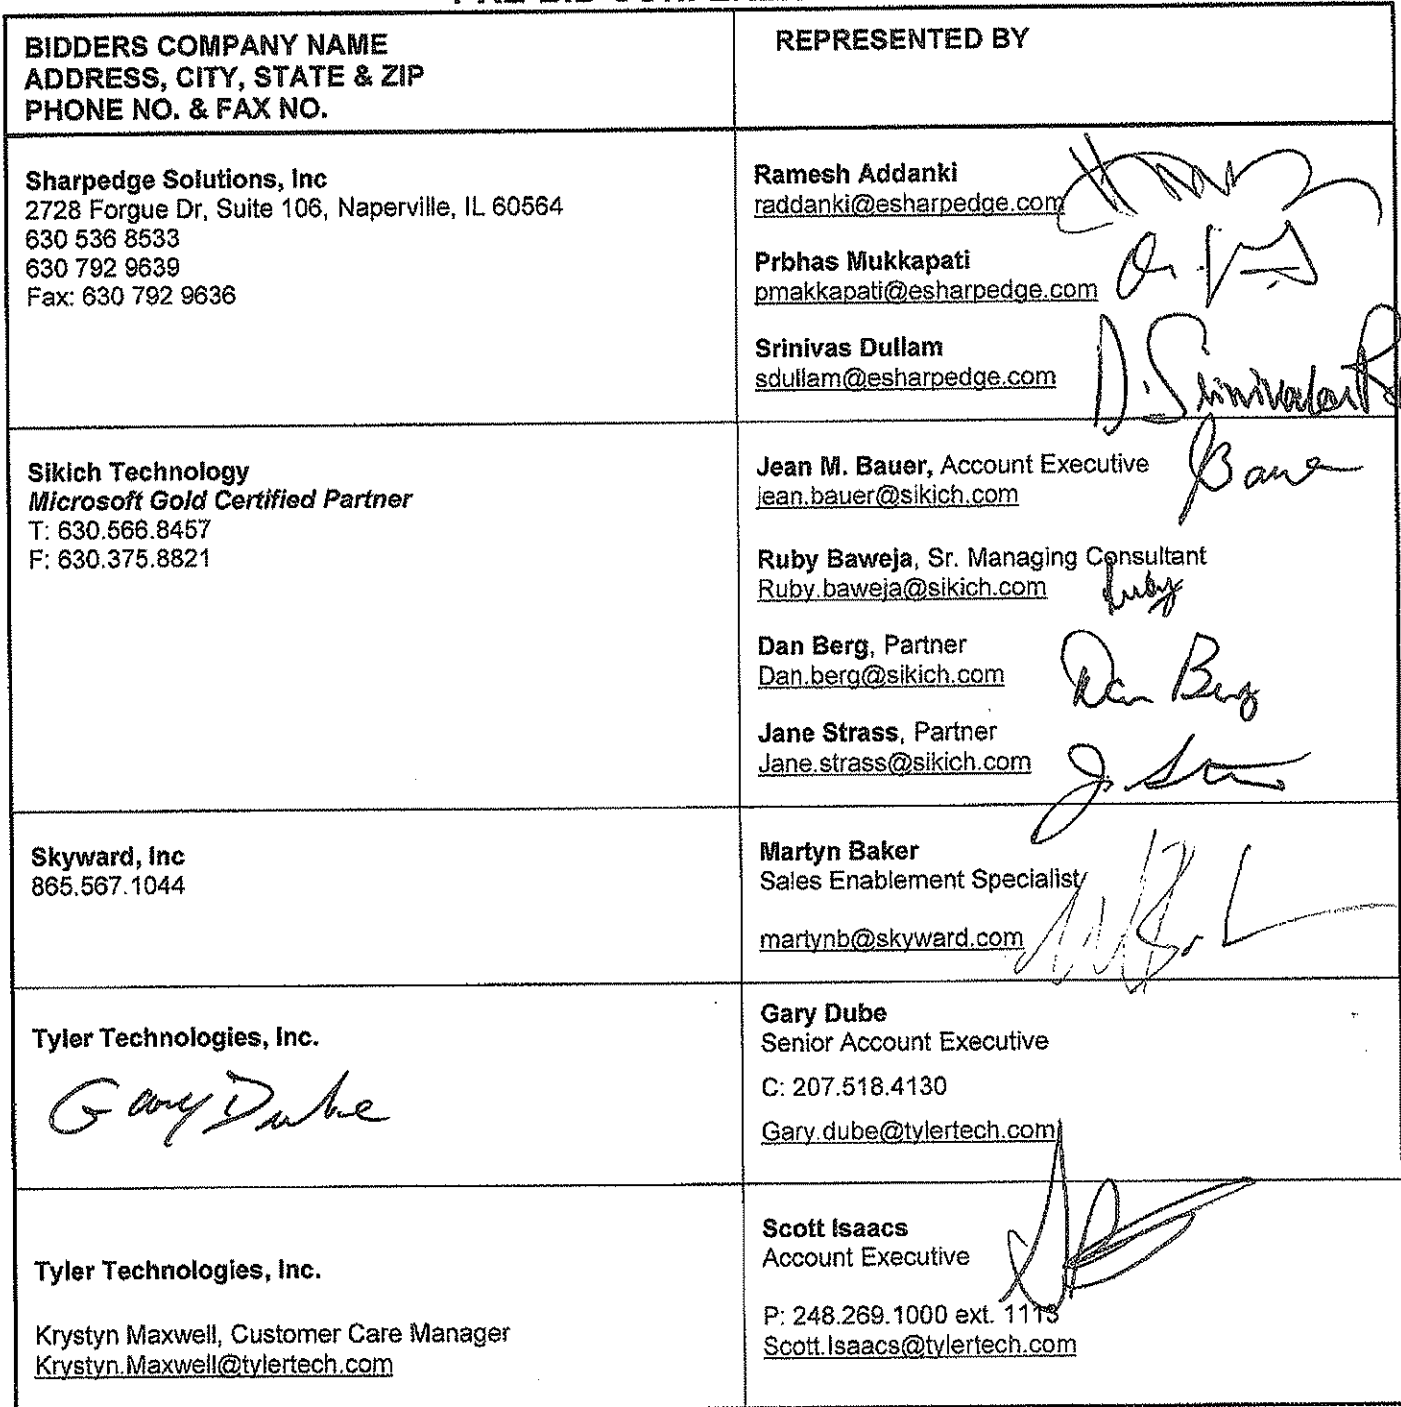 BIDDERS COMPANY NAME
ADDRESS, CITY, STATE & ZIP
PHONE NO. & FAX NO.
REPRESENTED BY
Sharpedge Solutions, Inc
2728 Forgue Dr, Suite 106, Naperville, IL 60564
630 536 8533
630 792 9639
Fax: 630 792 9636
Ramesh Addanki
raddanki@esharpedge.com
Prbhas Mukkapati
pmakkapati@esharpedge.com
Srinivas Dullam
sdullam@esharpedge.com
Sikich Technology
Microsoft Gold Certified Partner
T: 630.566.8457
F: 630.375.8821
Jean M. Bauer, Account Executive
jean.bauer@sikich.com
JBauer
Ruby Baweja, Sr. Managing Consultant
Ruby.baweja@sikich.com
Ruby
Dan Berg, Partner
Dan.berg@sikich.com
Dan Berg
Jane Strass, Partner
Jane.strass@sikich.com
Skyward, Inc
865.567.1044
Martyn Baker
Sales Enablement Specialist
martynb@skyward.com
Tyler Technologies, Inc.
Gary Dube
Gary Dube
Senior Account Executive
C: 207.518.4130
Gary.dube@tylertech.com
Tyler Technologies, Inc.
Krystyn Maxwell, Customer Care Manager
Krystyn.Maxwell@tylertech.com
Scott Isaacs
Account Executive
P: 248.269.1000 ext. 1113
Scott.Isaacs@tylertech.com